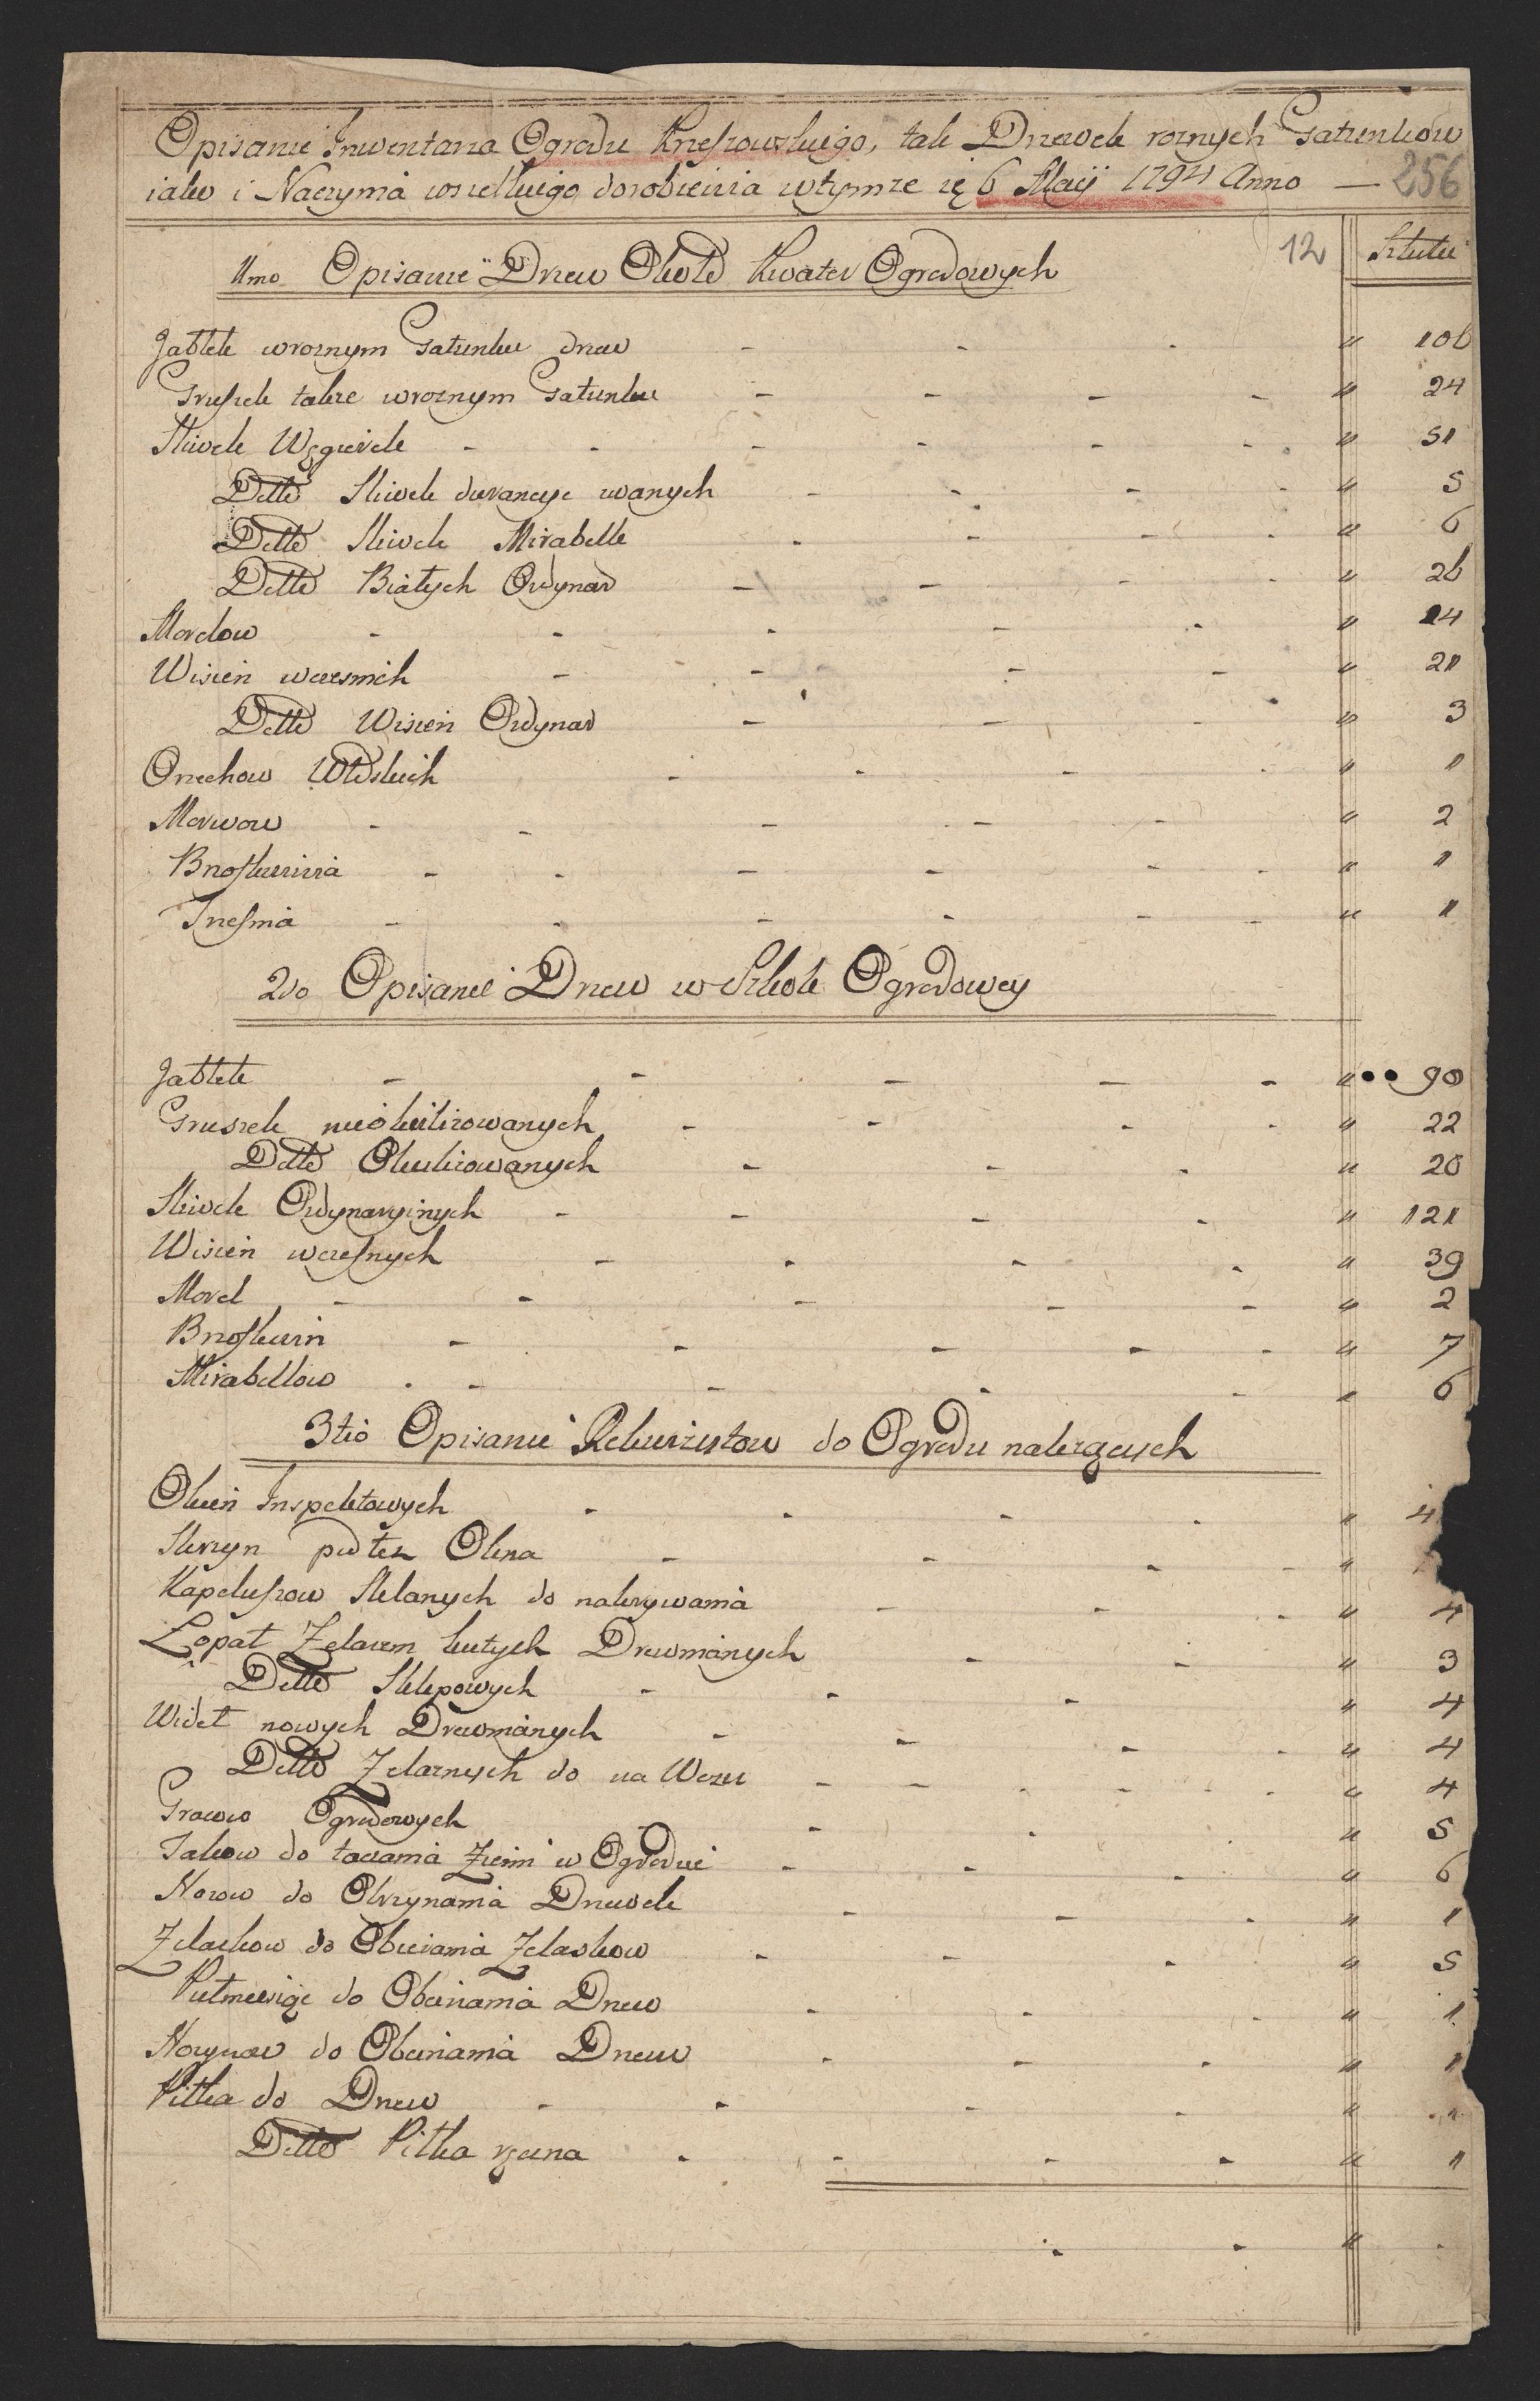 Opisanie Inwentarza Ogrodu Krzeszowskiego, tak Drzewek roznych Gatunkow
iako i Naczynia wszelkiego dorobienia wtymze ię 6 Maÿ 1794 Anno — 256
12 Sztuki
1mo Opisanie Drzew Około Kwater Ogrodowych
Jabłek wroznym Gatunku drzew - - - " 106
Gruszek takze wroznym Gatunku - - - - " 24
Sliwek Węgierek - - - - - - " 51
Detto Sliwek durancye wanych - - - - " 5
Detto Sliwek Mirabelle - - - - " 6
Detto Białych Ordynar - - - - " 26
Morelow - - - - - " 14
Wisien wczesnich - - - - " 21
Detto Wisien Ordynar - - - " 3
Orzechow Włoskich - - - - " 1
Morwow - - - - - " 2
Brzoskwinia - - - - - - " 1
Trzesnia - - - - - - " 1
2do Opisanie Drzew w Szkole Ogrodowey
Jabłek - - - - - " 90
Gruszek nieokulizowanych - - - - " 22
Detto Okulizowanych - - - " 20
Sliwek Ordynaryinych - - - - " 121
Wisien wczesnych - - - - " 39
Morel - - - - - " 2
Brzoskwin - - - - - " 7
Mirabellow - - - - - " 6
3tio Opisanie Rekwizytow do Ogrodu nalezących
Okien Inspektowych - - - - " 4
Skrzyn pod tez Okna - - - - "
Kapeluszow Sklanych do nakrywania - - - " 4
Łopat Zelazem kutych Drewnianych - - " 3
Detto Sklepowych - - - " 4
Wideł nowych Drewnianych - - - - " 4
Detto Zelaznych do na Wozu - - - - - " 4
Grawo Ogrodowych - - " 5
Takow do taczania Ziemi w Ogrodzie - - - " 6
Nozow do Obrzynania Drzewek - - - " 1
Zelaskow do Obcinania Zelaskow - - - " 5
do Obcinania Drzew - - - " 1
do Obcinania Drzew - - - " 1
Piłka do Drzew - - - - "
Detto Piłka ręczna - - - - " 1
- - "